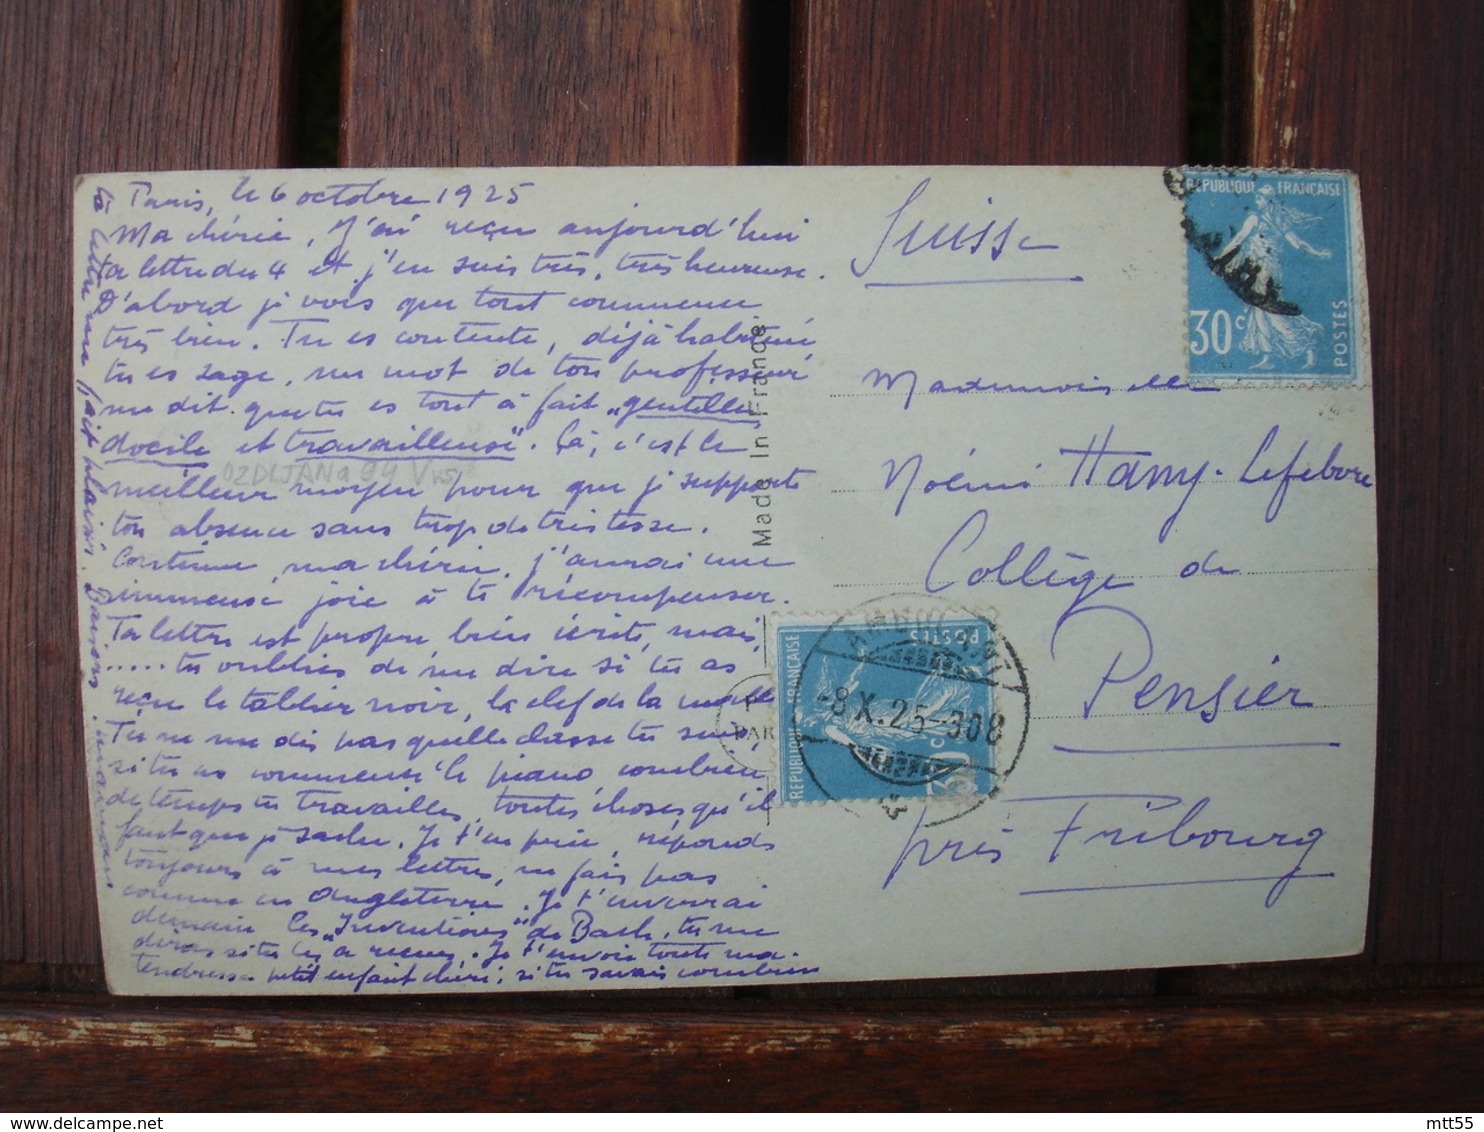 Paris, le 6 octobre 1925
Ma chérie, J'ai reçu aujourd'hui
ta lettre du 4 et j'en suis très, très heureuse.
D'abord je vois que tout commence
très bien. Tu es contente, déjà habituée
tu es sage, un mot de ton professeur
me dit que tu es tout à fait "gentille,
docile et travailleuse". Ça, c'est le
meilleur moyen pour que je supporte
ton absence sans trop de tristesse.
Continue, ma chérie, j'aurai une
immense joie à te récompenser.
Ta lettre est propre, bien écrite, mais,
..... tu oublies de me dire si tu as
reçu le tablier noir, la clef de la malle
Tu ne me dis pas quelle classe tu suis,
si tu as commencé le piano combien
de temps tu travailles, toutes choses qu'il
faut que je sache. Je t'en prie, réponds
toujours à mes lettres, ne fais pas
comme en Angleterre. Je t'enverrai
demain les "Inventions" de Bach, tu me
diras si tu les a reçues. Je t'envoie toute ma
tendresse petit enfant chéri; si tu savais combien
ta lettre me fait plaisir. Baisers. maman
Made in France.
Suisse
Mademoiselle
Noémi Hany-Lefebvre
Collège de
Pensier
près Fribourg
REPUBLIQUE FRANÇAISE
30c
POSTES
REPUBLIQUE FRANÇAISE
POSTES
AMBULANT
-8.X.25-308
PAR
delcampe.net
mtt55